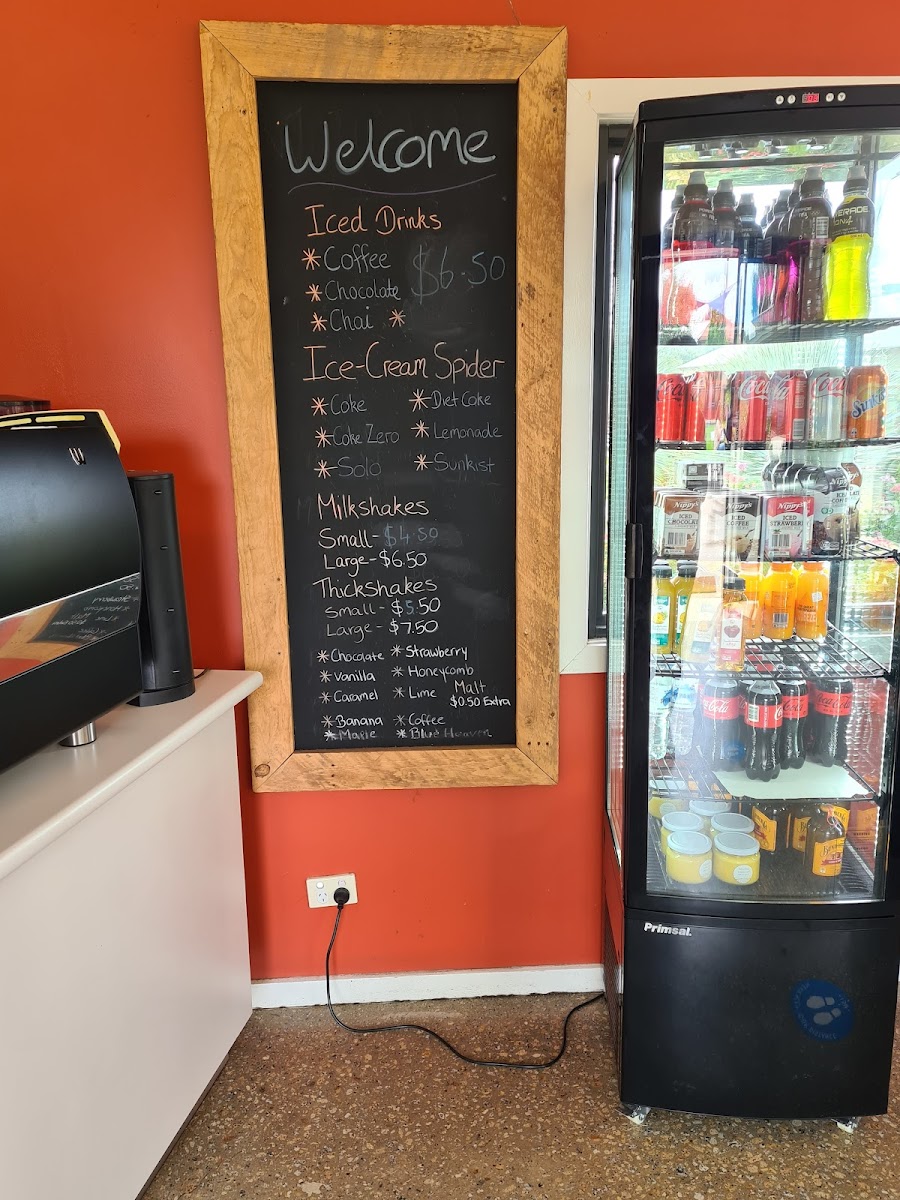 Welcome
Iced Drinks
* Coffee $6.50
* Chocolate
* Chai *
Ice-Cream Spider
* Coke * Diet Coke
* Coke Zero * Lemonade
* Solo * Sunkist
Milkshakes
Small - $4.50
Large - $6.50
Thickshakes
Small - $5.50
Large - $7.50
* Chocolate * Strawberry
* Vanilla * Honeycomb
* Caramel * Lime Malt
$0.50 Extra
* Banana * Coffee
* Maple * Blue Heaven
Nippy's
ICED
CHOCOLATE
Nippy's
ICED
COFFEE
Nippy's
ICED
STRAWBERRY
Coca-Cola
Primsal.